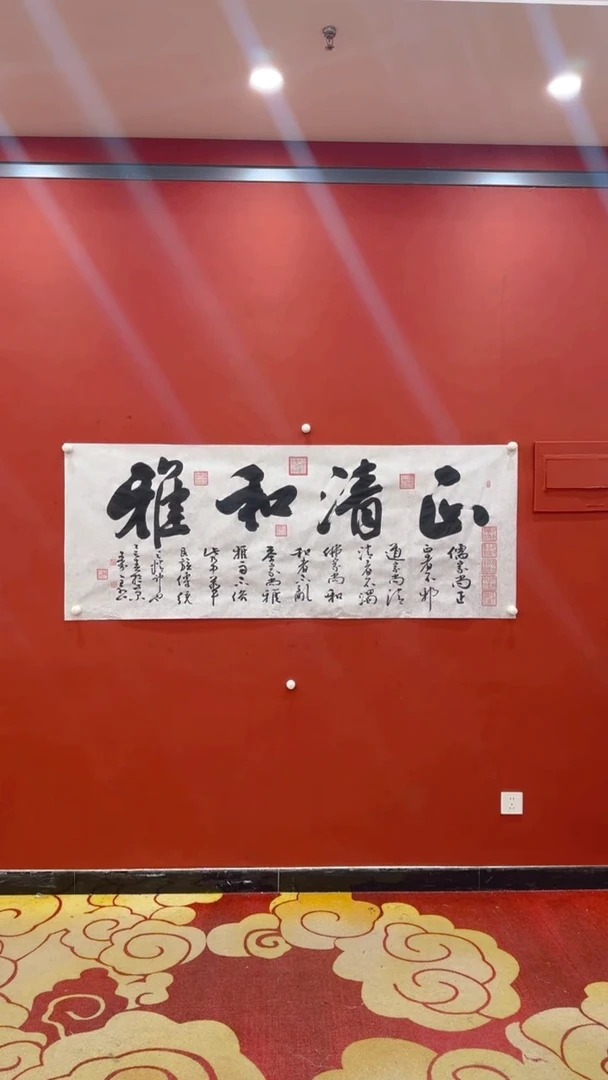 正清和雅
儒家尚正
正者不邪
道家尚清
清者不浊
佛家尚和
和者不亂
茶家尚雅
雅者不俗
此乃華夏
民族傳统
之精神也